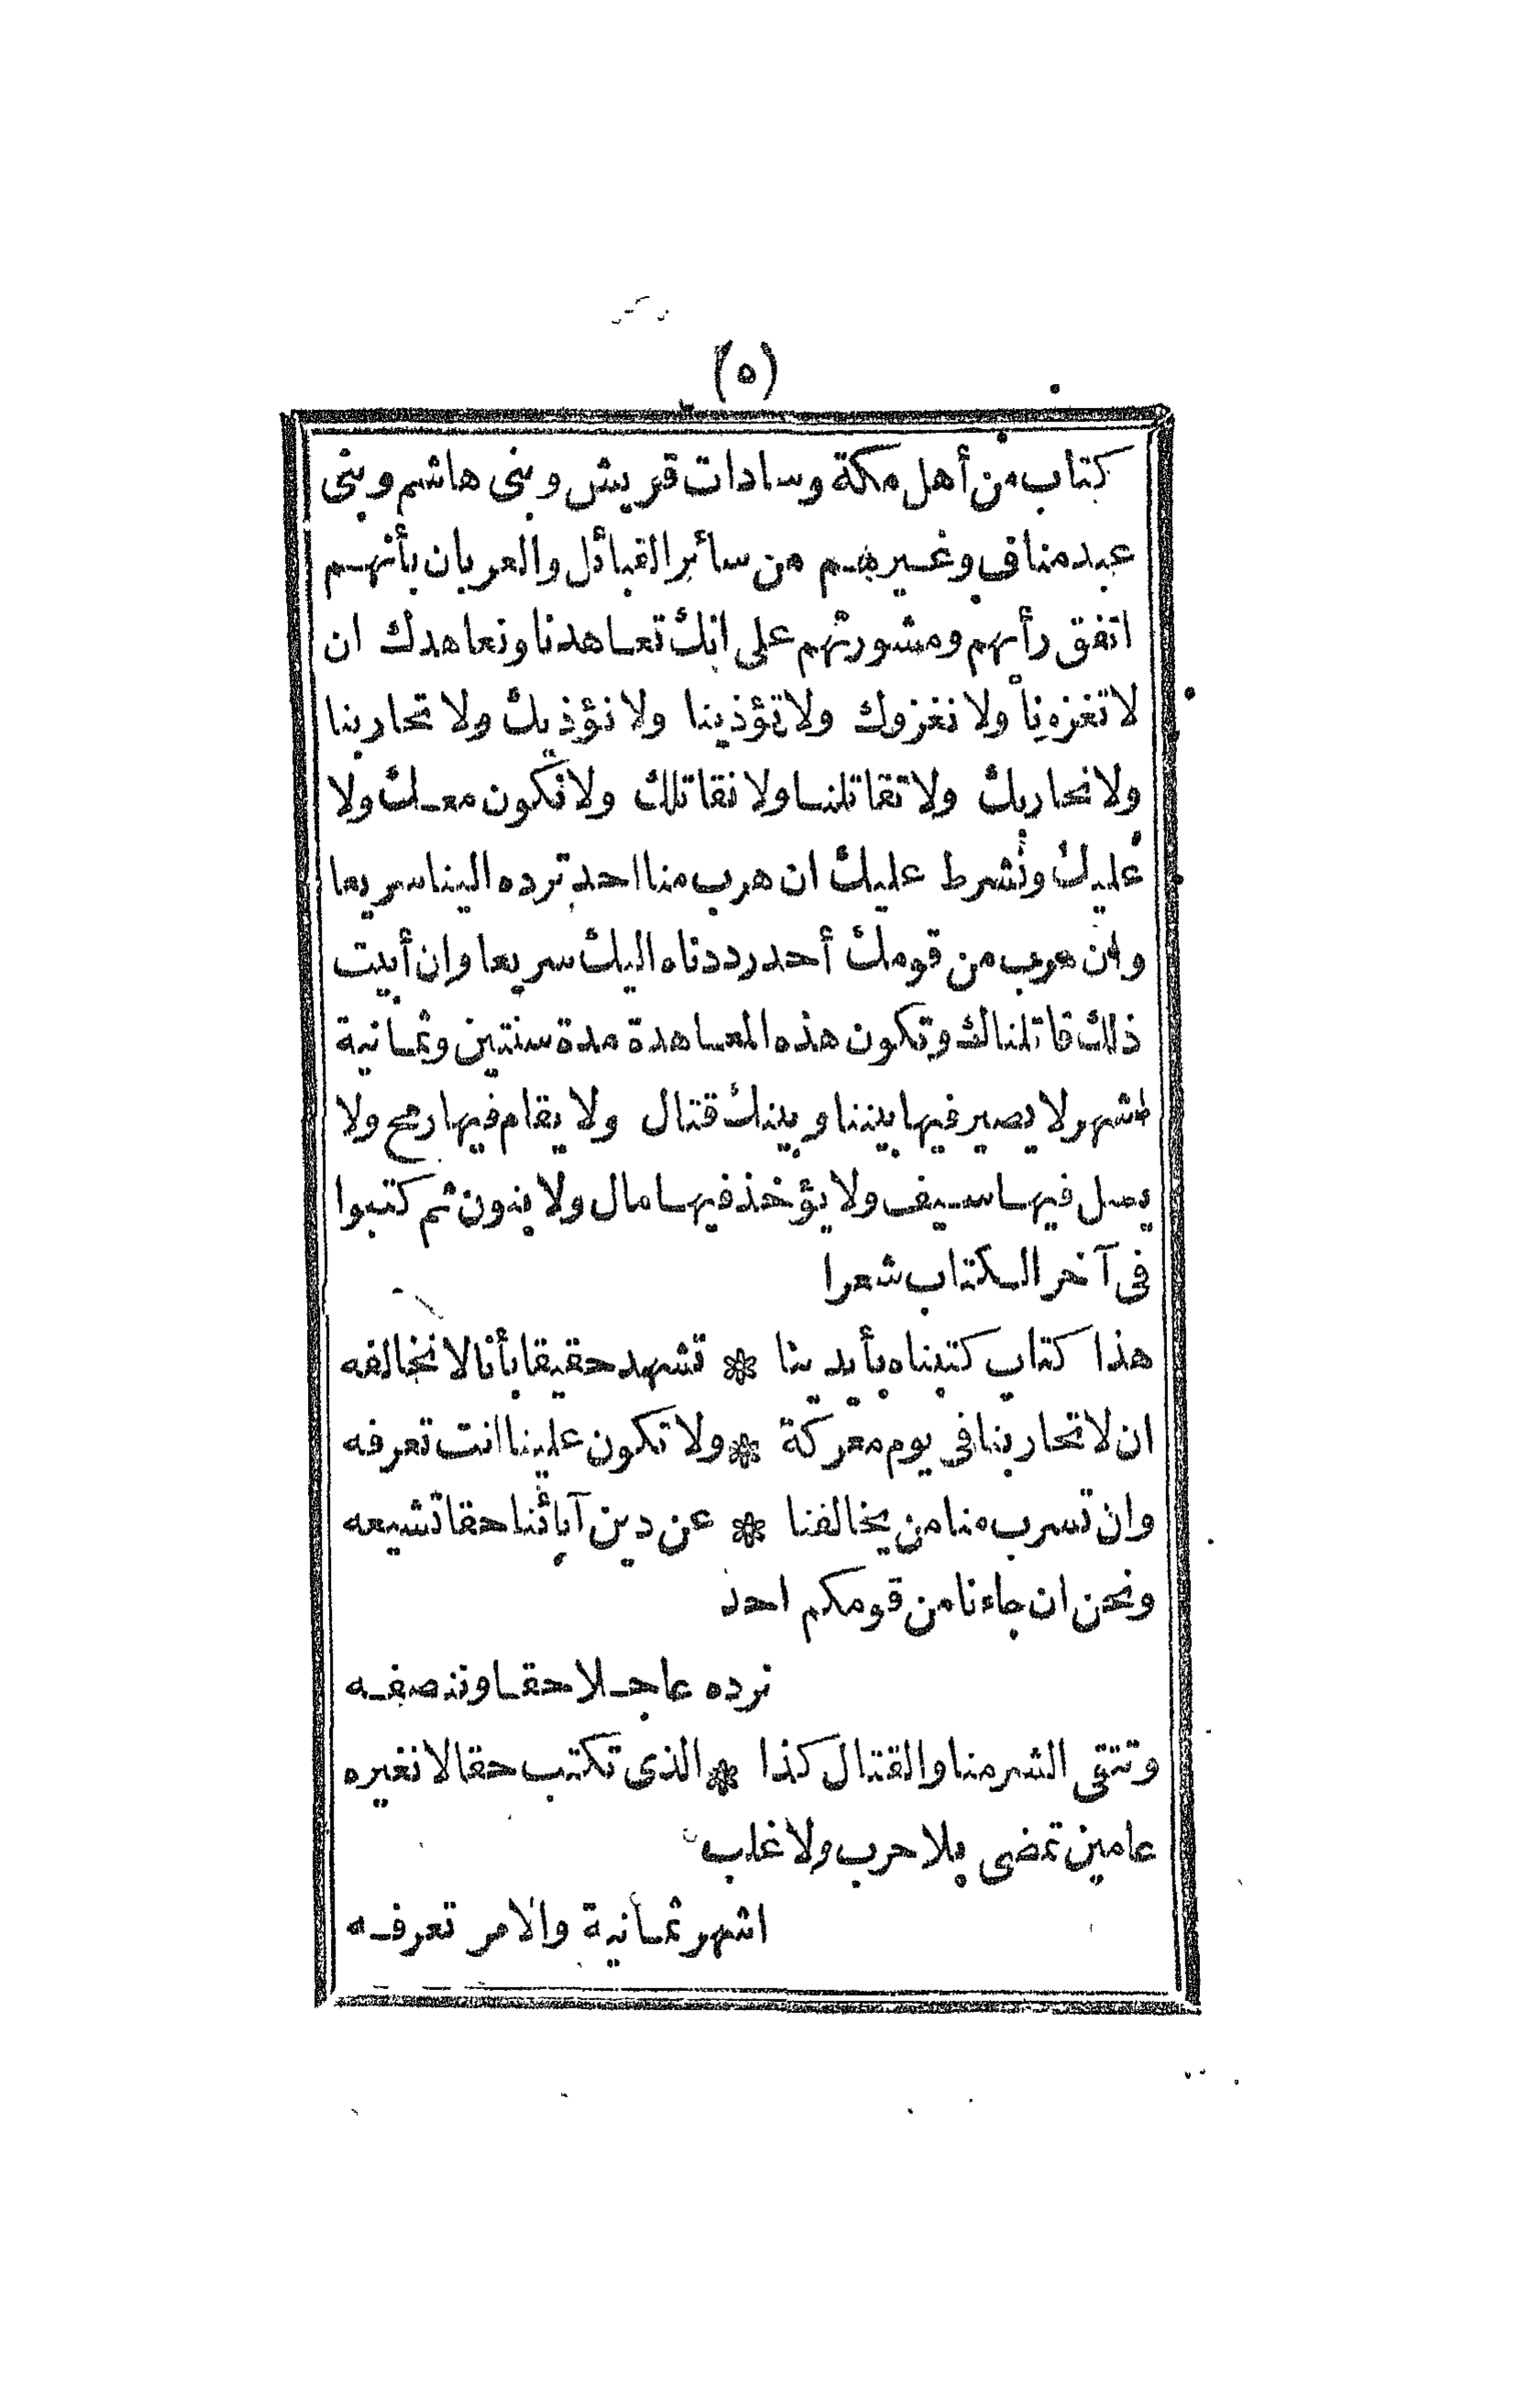 (٥)
كتاب من أهل مكة وسادات قريش وبنى هاشم وبنى
عبد مناف وغيرهم من سائر القبائل والعربان بأنهم
اتفق رأيهم ومشورتهم على انك تعاهدنا ونعاهدك ان
لا تغزونا ولا نغزوك ولا تؤذينا ولا نؤذيك ولا تحاربنا
ولا نحاربك ولا تقاتلنا ولا نقاتلك ولا نكون معك ولا
عليك ونشرط عليك ان هرب منا احد ترده الينا سريعا
وان هرب من قومك أحد رددناه اليك سريعا وان أبيت
ذلك قاتلناك وتكون هذه المعاهدة مدة سنتين وثمانية
اشهر لا يصير فيها بيننا وبينك قتال ولا يقام فيها رمح ولا
يصل فيها سيف ولا يؤخذ فيها مال ولا بنون ثم كتبوا
فى آخر الكتاب شعرا
هذا كتاب كتبناه بأيدينا * تشهد حقيقا بأنا لا نخالفه
ان لا تحاربنا فى يوم معركة * ولا تكون علينا انت تعرفه
وان تسرب منا من يخالفنا * عن دين آبائنا حقا تشيعه
ونحن ان جاءنا من قومكم احد
نرده عاجلا حقا وننصفه
وتتقى الشر منا والقتال كذا * الذى تكتب حقا لا نغيره
عامين تمضى بلا حرب ولا غلب
اشهر ثمانية والامر تعرفه